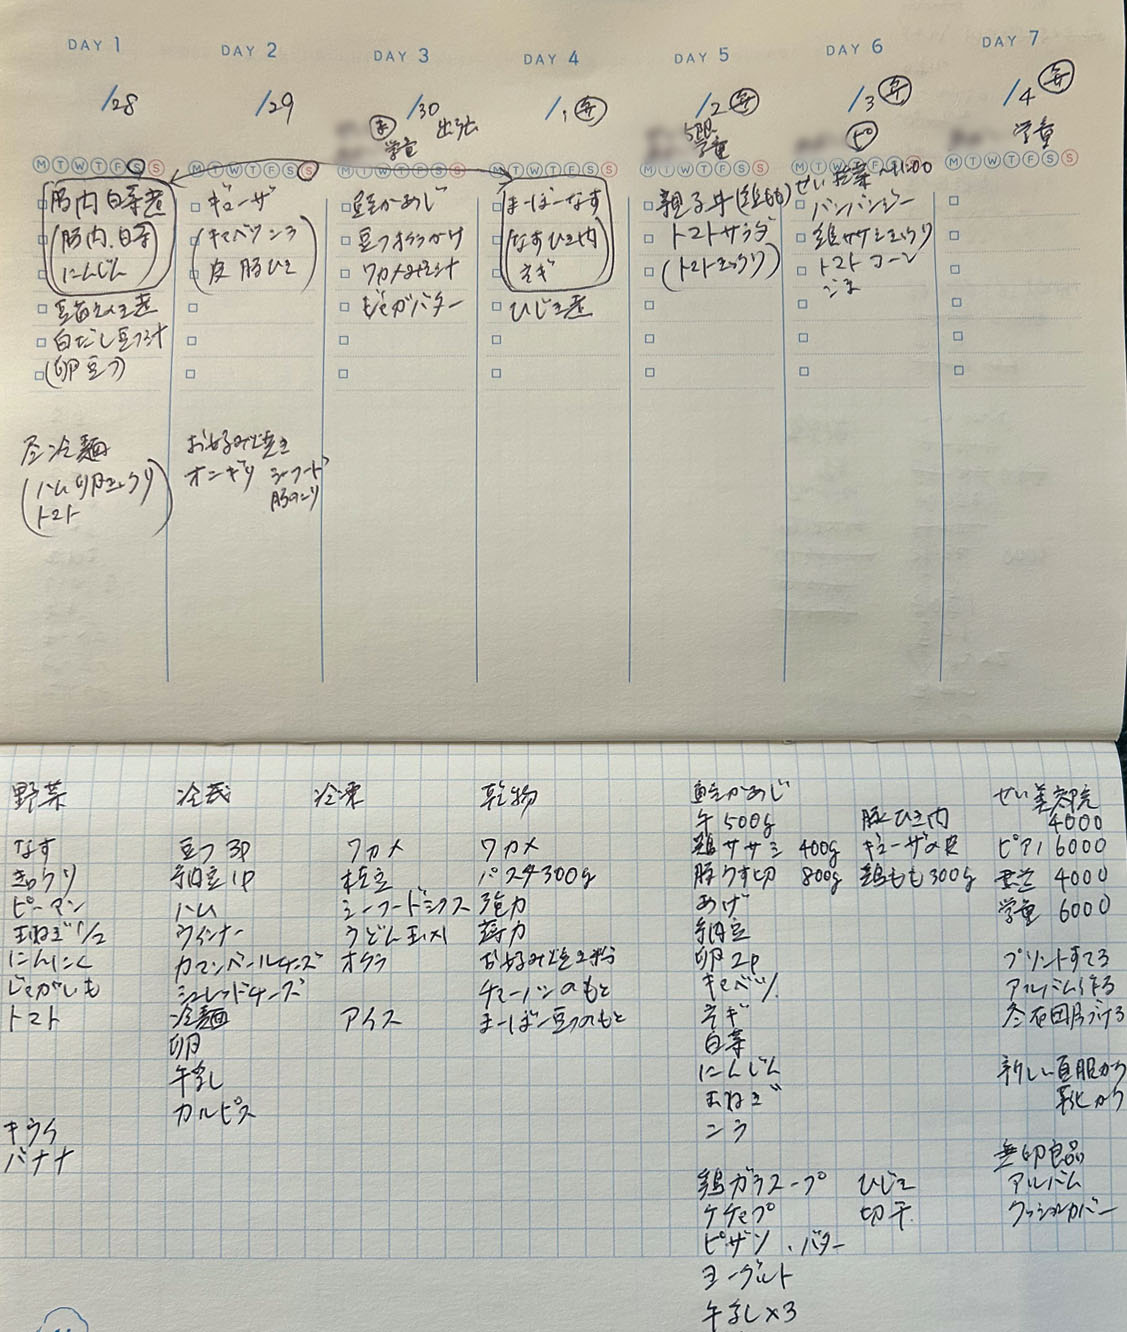 DAY 1
/28
M T W T F S S
豚肉白菜煮
(豚肉、白菜
にんじん)
白だし豆フ汁
(卵豆フ)
昼冷麺
(ハム卵きゅうり
トマト)
DAY 2
/29
M T W T F S S
ギョーザ
(キャベツニラ
皮 豚ひき)
お好み焼き
オニギリ シーフード
豚のこり
DAY 3
/30
学童
M T W T F S S
鮭かあじ
豆フオクラかけ
ワカメみそ汁
じゃがバター
DAY 4
/1
M T W T F S S
まーぼーなす
(なすひき肉
ネギ)
ひじき煮
DAY 5
/2
学童
M T W T F S S
親子丼(鶏もも)
トマトサラダ
(トマトきゅうり)
DAY 6
/3
ピ
M T W T F S S
バンバンジー
鶏ササミきゅうり
トマト コーン
ごま
DAY 7
/4
学童
M T W T F S S
野菜
なす
きゅうり
ピーマン
玉ねぎ 1/2
にんにく
じゃがいも
トマト
キウイ
バナナ
冷蔵
豆フ 3P
納豆 1P
ハム
ウインナー
カマンベールチーズ
シュレッドチーズ
冷麺
卵
牛乳
カルピス
冷凍
ワカメ
枝豆
シーフードミックス
うどん玉×1
オクラ
アイス
乾物
ワカメ
パスタ300g
強力
薄力
お好み焼き粉
チャーハンのもと
まーぼー豆フのもと
鮭かあじ
牛 500g
鶏ササミ 400g
豚うす切 800g
あげ
納豆
卵 2P
キャベツ
ネギ
白菜
にんじん
玉ねぎ
ニラ
鶏ガラスープ
ケチャプ
ピザソ、バター
ヨーグルト
牛乳×3
豚ひき肉
ギョーザの皮
鶏もも300g
ひじき
切干
せい美容院
4000
ピアノ 6000
4000
学童 6000
プリントすてる
アルバム作る
冬布団片づける
新しい夏服かう
靴かう
無印良品
アルバム
クッションカバー